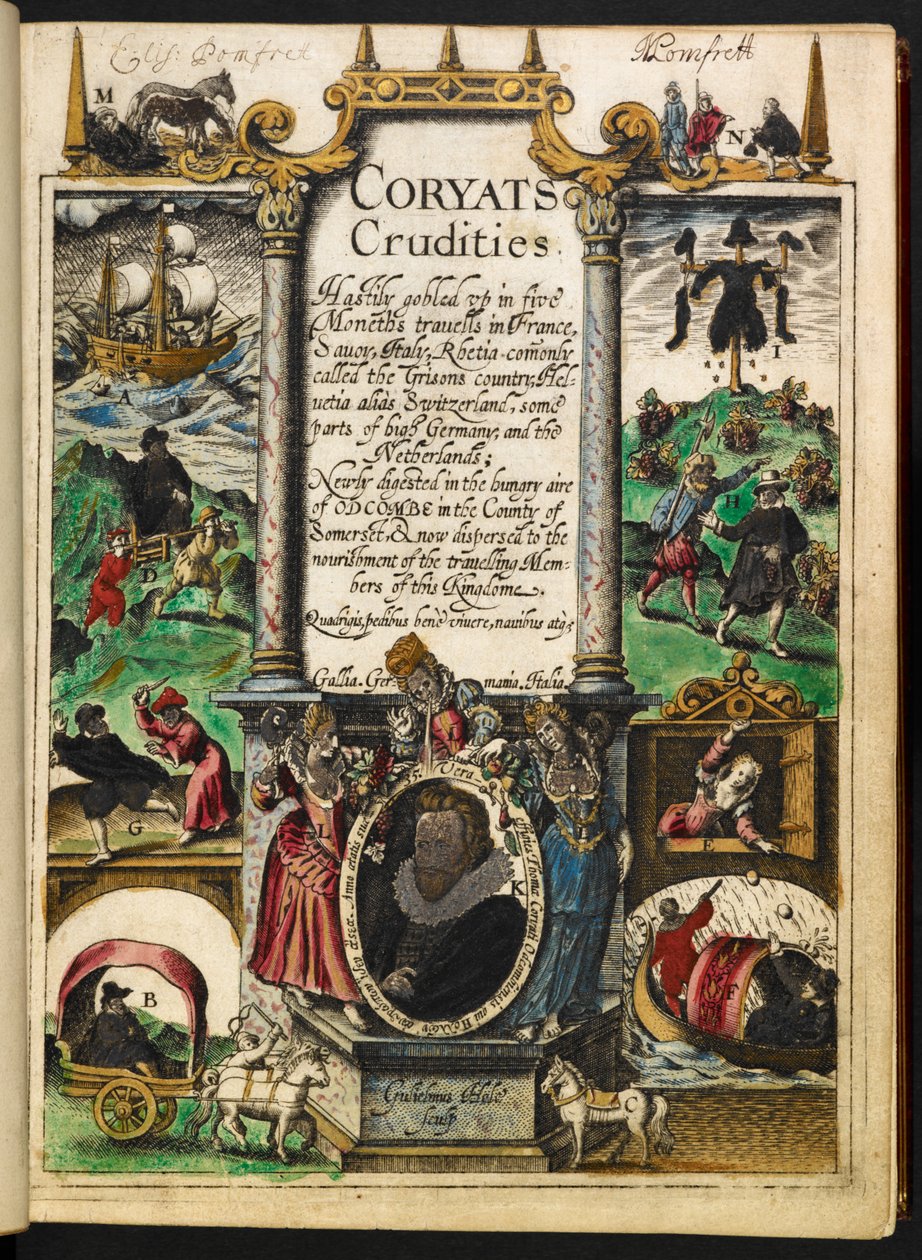 Elis: Pomfrett
Pomfrett
M
N
CORYATS
Crudities.
Hastily gobled vp in five
Moneths travells in France,
Savoy, Italy, Rhetia comonly
called the Grisons country, Hel-
vetia aliàs Switzerland, some
parts of high Germany, and the
Netherlands;
Newly digested in the hungry aire
of ODCOMBE in the County of
Somerset, & now dispersed to the
nourishment of the travelling Mem-
bers of this Kingdome.
Quadrigis, pedibus benè viuere, nauibus atq;
Gallia. Ger- mania. Italia.
A
D
G
B
I
H
E
F
L
K
Vera
effigies Thomæ Coryati Odcombensis
Anno ætatis suæ 35
Gulielmus Hole
sculp